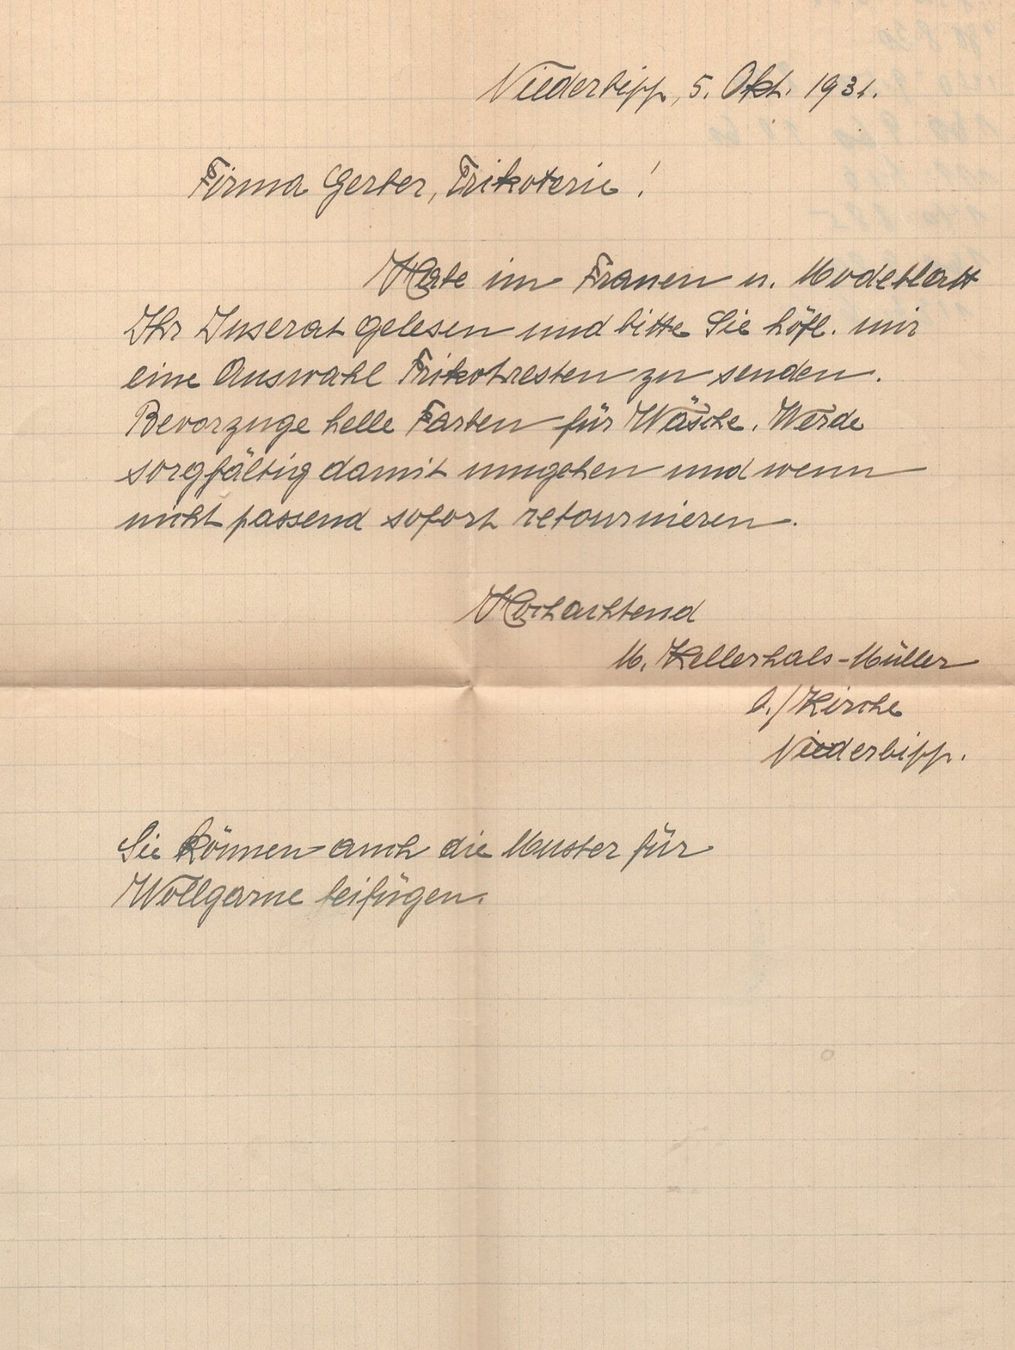 Niederbipp, 5. Okt. 1931.
Firma Gerber, Trikoterie!
Habe im Frauen u. Modeblatt
Ihr Inserat gelesen und bitte Sie höfl. mir
eine Auswahl Trikotresten zu senden.
Bevorzuge helle Farben für Wäsche. Werde
sorgfältig damit umgehen und wenn
nicht passend sofort retournieren.
Hochachtend
M. Kellerhals-Müller
b./Kirche
Niederbipp.
Sie können auch die Muster für
Wollgarne beifügen.